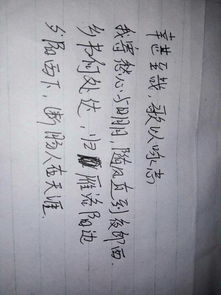 幸甚至哉，歌以咏志
我寄愁心与明月，随风直到夜郎西.
乡书何处达，归雁洛阳边
夕阳西下，断肠人在天涯.